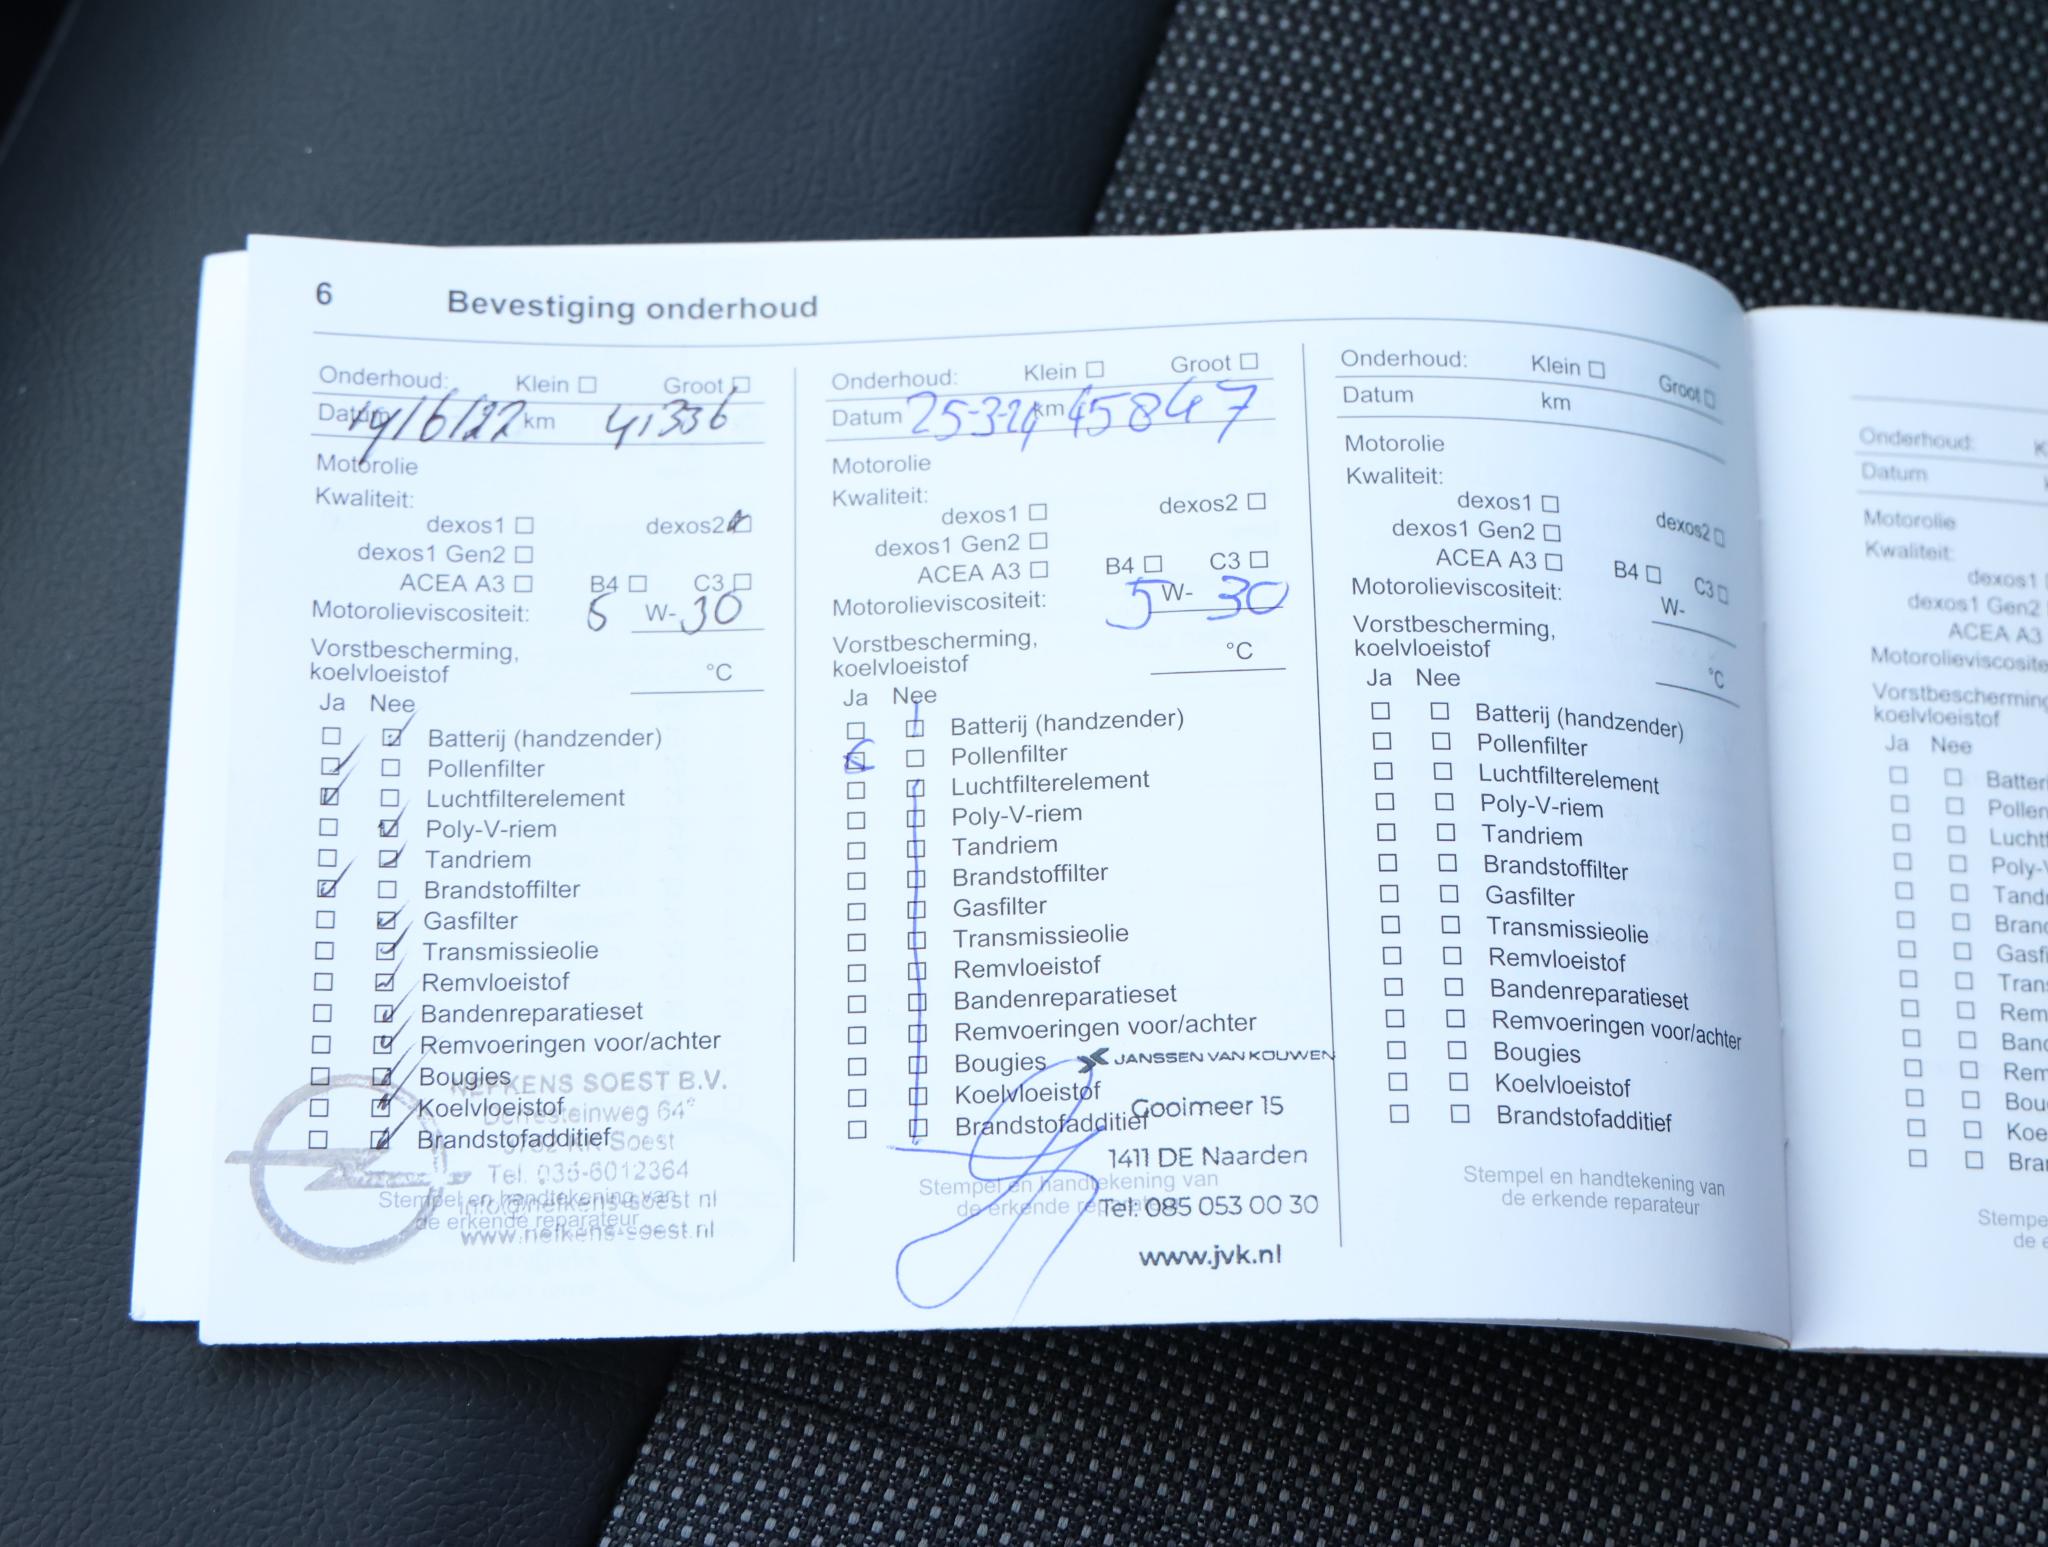 6 Bevestiging onderhoud
Onderhoud: Klein Groot
Datum 14/6/22 km 41336
Motorolie
Kwaliteit:
dexos1 dexos2
dexos1 Gen2
ACEA A3 B4 C3
Motorolieviscositeit: 5 W- 30
Vorstbescherming,
koelvloeistof °C
Ja Nee
Batterij (handzender)
Pollenfilter
Luchtfilterelement
Poly-V-riem
Tandriem
Brandstoffilter
Gasfilter
Transmissieolie
Remvloeistof
Bandenreparatieset
Remvoeringen voor/achter
Bougies
Koelvloeistof
Brandstofadditief
NEFKENS SOEST B.V.
Soest
Tel. 035-6012364
info@nefkens-soest.nl
www.nefkens-soest.nl
Stempel en handtekening van
de erkende reparateur
Onderhoud: Klein Groot
Datum 25-3-24 km 45847
Motorolie
Kwaliteit:
dexos1 dexos2
dexos1 Gen2
ACEA A3 B4 C3
Motorolieviscositeit: 5 W- 30
Vorstbescherming,
koelvloeistof °C
Ja Nee
Batterij (handzender)
Pollenfilter
Luchtfilterelement
Poly-V-riem
Tandriem
Brandstoffilter
Gasfilter
Transmissieolie
Remvloeistof
Bandenreparatieset
Remvoeringen voor/achter
Bougies
Koelvloeistof
Brandstofadditief
JANSSEN VAN KOUWEN
Gooimeer 15
1411 DE Naarden
Tel. 085 053 00 30
www.jvk.nl
Stempel en handtekening van
de erkende reparateur
Onderhoud: Klein Groot
Datum km
Motorolie
Kwaliteit:
dexos1 dexos2
dexos1 Gen2
ACEA A3 B4 C3
Motorolieviscositeit: W-
Vorstbescherming,
koelvloeistof °C
Ja Nee
Batterij (handzender)
Pollenfilter
Luchtfilterelement
Poly-V-riem
Tandriem
Brandstoffilter
Gasfilter
Transmissieolie
Remvloeistof
Bandenreparatieset
Remvoeringen voor/achter
Bougies
Koelvloeistof
Brandstofadditief
Stempel en handtekening van
de erkende reparateur
Onderhoud: K
Datum
Motorolie
Kwaliteit:
dexos1
dexos1 Gen2
ACEA A3
Motorolieviscosite
Vorstbescherming
koelvloeistof
Ja Nee
Batteri
Pollen
Lucht
Poly-V
Tand
Brand
Gasfi
Trans
Rem
Band
Rem
Bou
Koe
Bra
Stempe
de e